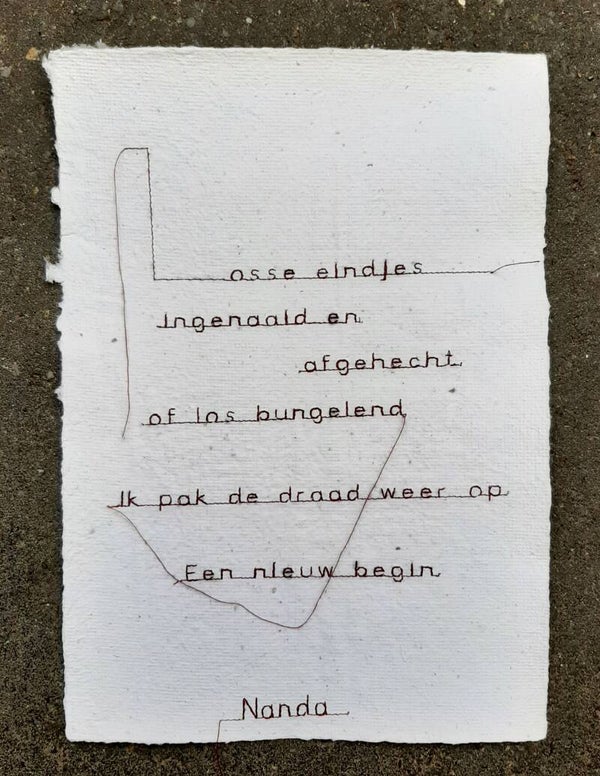 Losse eindjes
ingenaaid en
afgehecht
of los bungelend
Ik pak de draad weer op
Een nieuw begin
Nanda